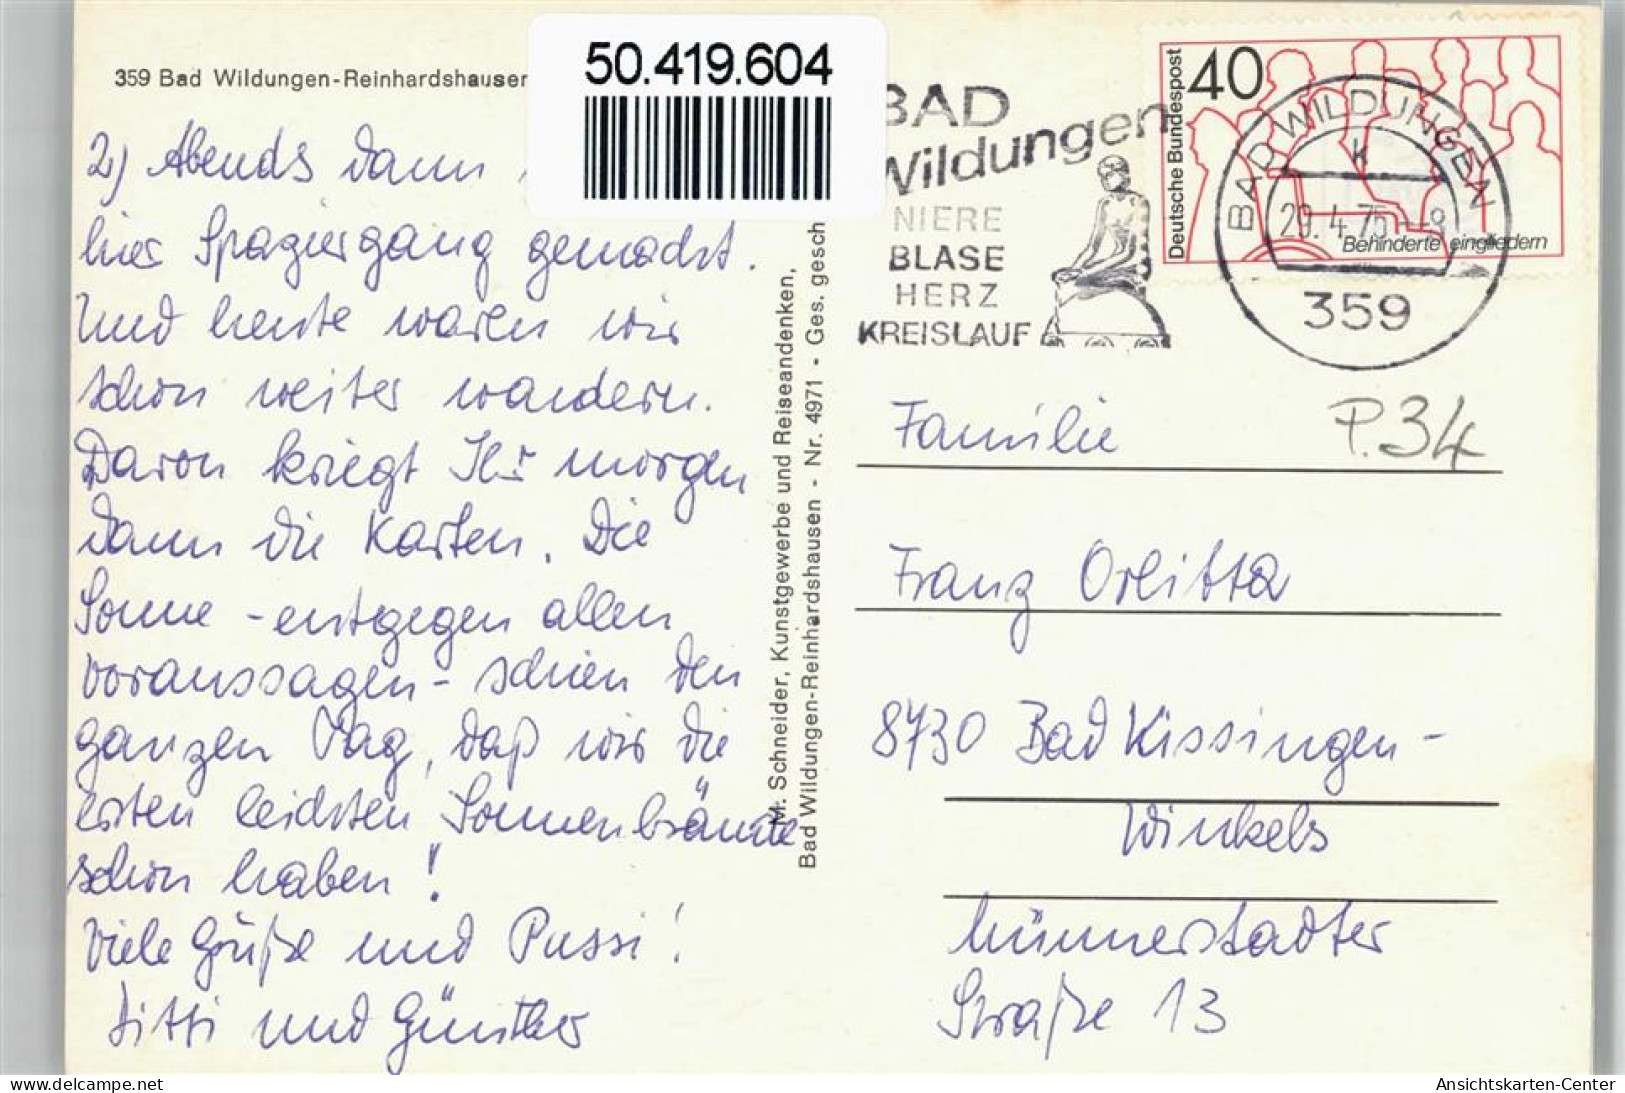 359 Bad Wildungen-Reinhardshausen
50.419.604
2) Abends dann
hier Spaziergang gemacht.
Und heute waren wir
schon weiter wandern.
Davon kriegt Ihr morgen
dann die Karten. Die
Sonne - entgegen allen
Voraussagen - schien den
ganzen Tag, daß wir die
ersten leichten Sonnenbrände
schon haben!
Viele Grüße und Pussi!
und Günther
M. Schneider, Kunstgewerbe und Reiseandenken,
Bad Wildungen-Reinhardshausen - Nr. 4971 - Ges. gesch
BAD
Wildungen
NIERE
BLASE
HERZ
KREISLAUF
Deutsche Bundespost
40
Behinderte eingliedern
BAD WILDUNGEN
K
29.4.75
359
P.34
Familie
Franz Orlitta
8730 Bad Kissingen-
Winkels
Münnerstadter
Straße 13
delcampe.net
Ansichtskarten-Center